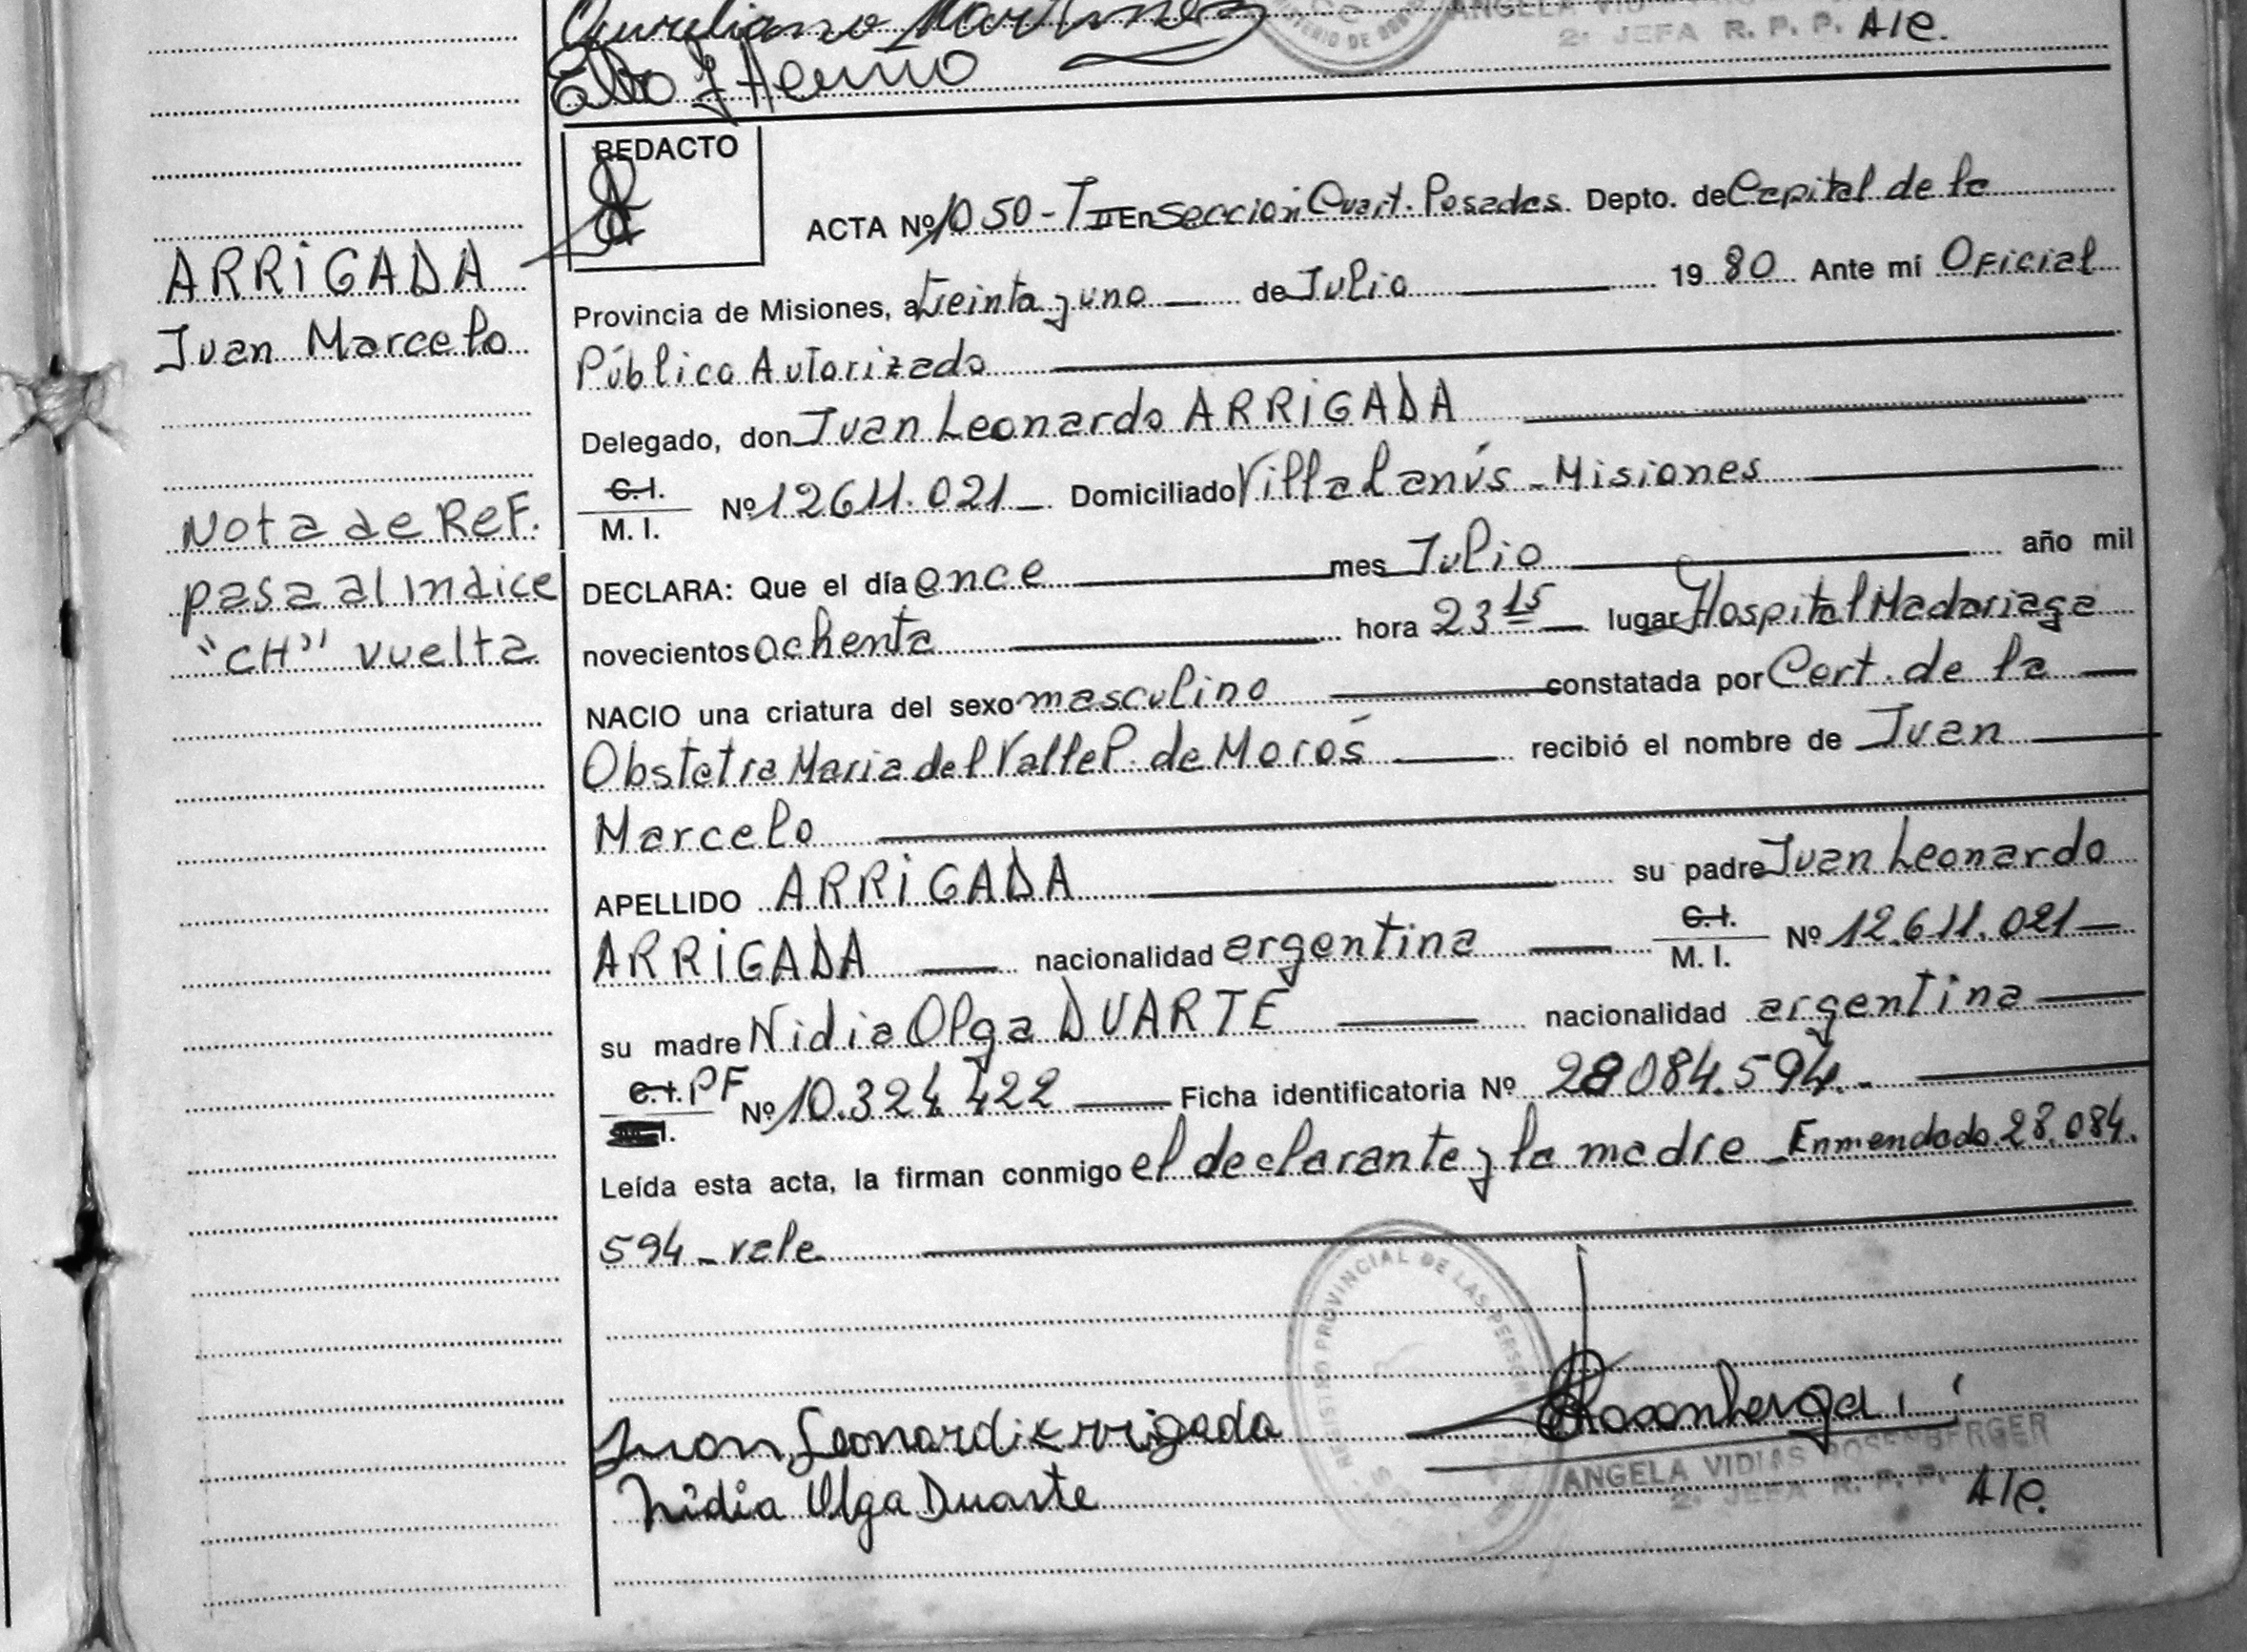 Aureliano Martinez
2ª JEFA R. P. P. A/c.
REDACTO
ARRIGADA
Juan Marcelo
Nota de Ref.
pasa al indice
"CH" vuelta
ACTA Nº 1050-T II En Sección Cuart. Posadas Depto. de Capital de la
Provincia de Misiones, a treinta y uno de Julio 19 80 Ante mí Oficial
Público Autorizado
Delegado, don Juan Leonardo ARRIGADA
C.I.
M. I. Nº 12611.021 Domiciliado Villa Lanús - Misiones
DECLARA: Que el día once mes Julio año mil
novecientos ochenta hora 23 15 lugar Hospital Madariaga
NACIO una criatura del sexo masculino constatada por Cert. de la
Obstetra Maria del Valle P. de Morós recibió el nombre de Juan
Marcelo
APELLIDO ARRIGADA su padre Juan Leonardo
ARRIGADA nacionalidad argentina C.I. M. I. Nº 12.611.021
su madre Nidia Olga DUARTE nacionalidad argentina
C.I. PF Nº 10.324.422 Ficha identificatoria Nº 28084.594.-
Leída esta acta, la firman conmigo el declarante y la madre - Enmendado 28.084.
594 - vale
REGISTRO PROVINCIAL DE LAS PERSONAS
Juan Leonardo Arrigada
Nidia Olga Duarte
ANGELA VIDIAS ROSENBERGER
2ª JEFA R. P. P. A/c.